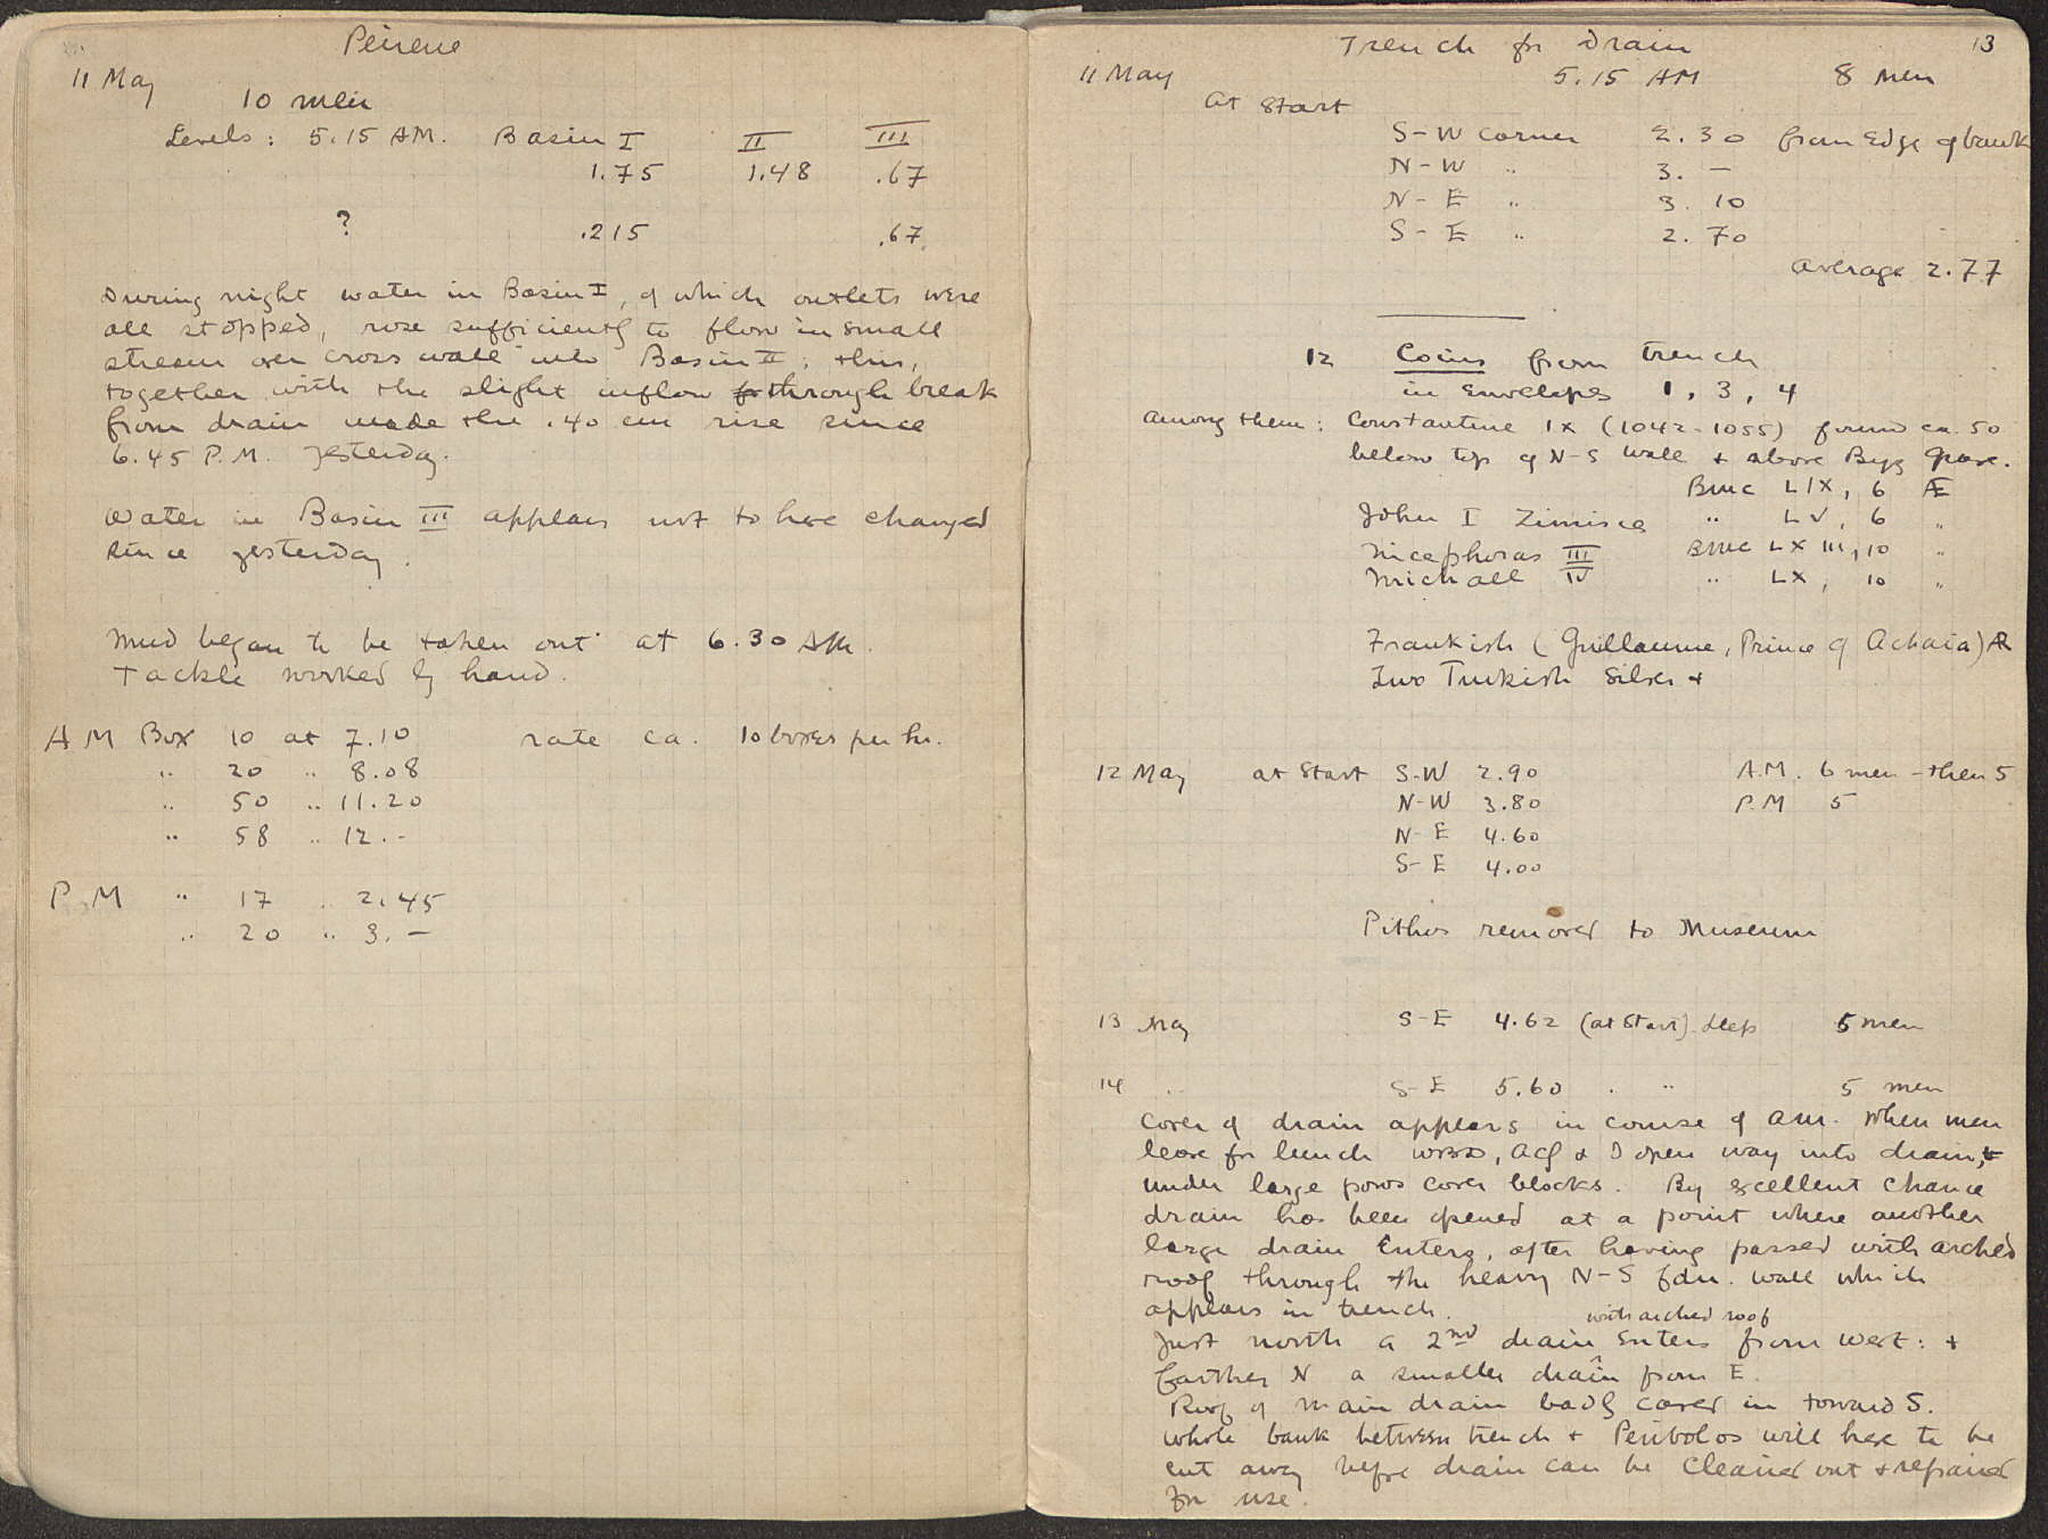 Peirene
11 May
10 men
Levels: 5.15 AM. Basin I II III
1.75 1.48 .67
? .215 .67
During night water in Basin I, of which outlets were
all stopped, rose sufficiently to flow in small
stream over cross wall into Basin II; this,
together with the slight inflow through break
from drain made the .40 cm rise since
6.45 P.M. yesterday.
Water in Basin III appears not to have changed
since yesterday.
Mud began to be taken out at 6.30 AM.
Tackle worked by hand.
AM Box 10 at 7.10 rate ca. 10 boxes per hr.
" 20 " 8.08
" 50 " 11.20
" 58 " 12.-
P.M " 17 " 2.45
" 20 " 3.-
Trench for Drain 13
11 May 5.15 AM 8 men
At Start
S-W corner 2.30 from edge of bank
N-W " 3.-
N-E " 3.10
S-E " 2.70
Average 2.77
12 Coins from trench
in Envelopes 1, 3, 4
Among them: Constantine IX (1042-1055) found ca. 50
below top of N-S wall + above Byz
BMC LIX, 6 Æ
John I Zimisce " LV, 6 "
Nicephoras III BMC LXIII, 10 "
Michael IV " LX, 10 "
Frankish (Guillaume, Prince of Achaia) AR
Two Turkish Silver +
12 May at Start S-W 2.90 A.M. 6 men - then 5
N-W 3.80 P.M 5
N-E 4.60
S-E 4.00
Pithos removed to Museum
13 May S-E 4.62 (at Start) deep 5 men
14 " S-E 5.60 " " 5 men
Cover of drain appears in course of AM. When men
leave for lunch WBD, & I open way into drain,
under large poros cover blocks. By excellent chance
drain has been opened at a point where another
large drain enters, after having passed with arched
roof through the heavy N-S fdn. wall which
appears in trench.
Just north a 2nd drain with arched roof enters from west: +
farther N a smaller drain from E.
Roof of main drain badly caved in toward S.
Whole bank between trench + Peribolos will have to be
cut away before drain can be cleaned out + repaired
for use.